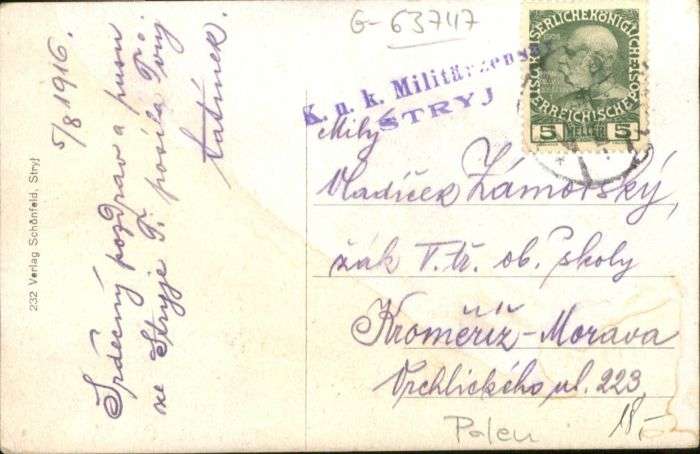 G-63747
5/8 1916.
Srdečný pozdrav a
ze Stryje Ti posílá Tvůj
tatínek.
232 Verlag Schönfeld, Stryj
K. u. k. Militärzensur
STRYJ
KAISERLICHE KÖNIGLICHE
ÖSTERREICHISCHE
1908
5 HELLER 5
Milý
Vladíček Zámorský,
žák I. tř. ob. školy
Kroměříž-Morava
Vrchlického ul. 223.
Polen
18,-